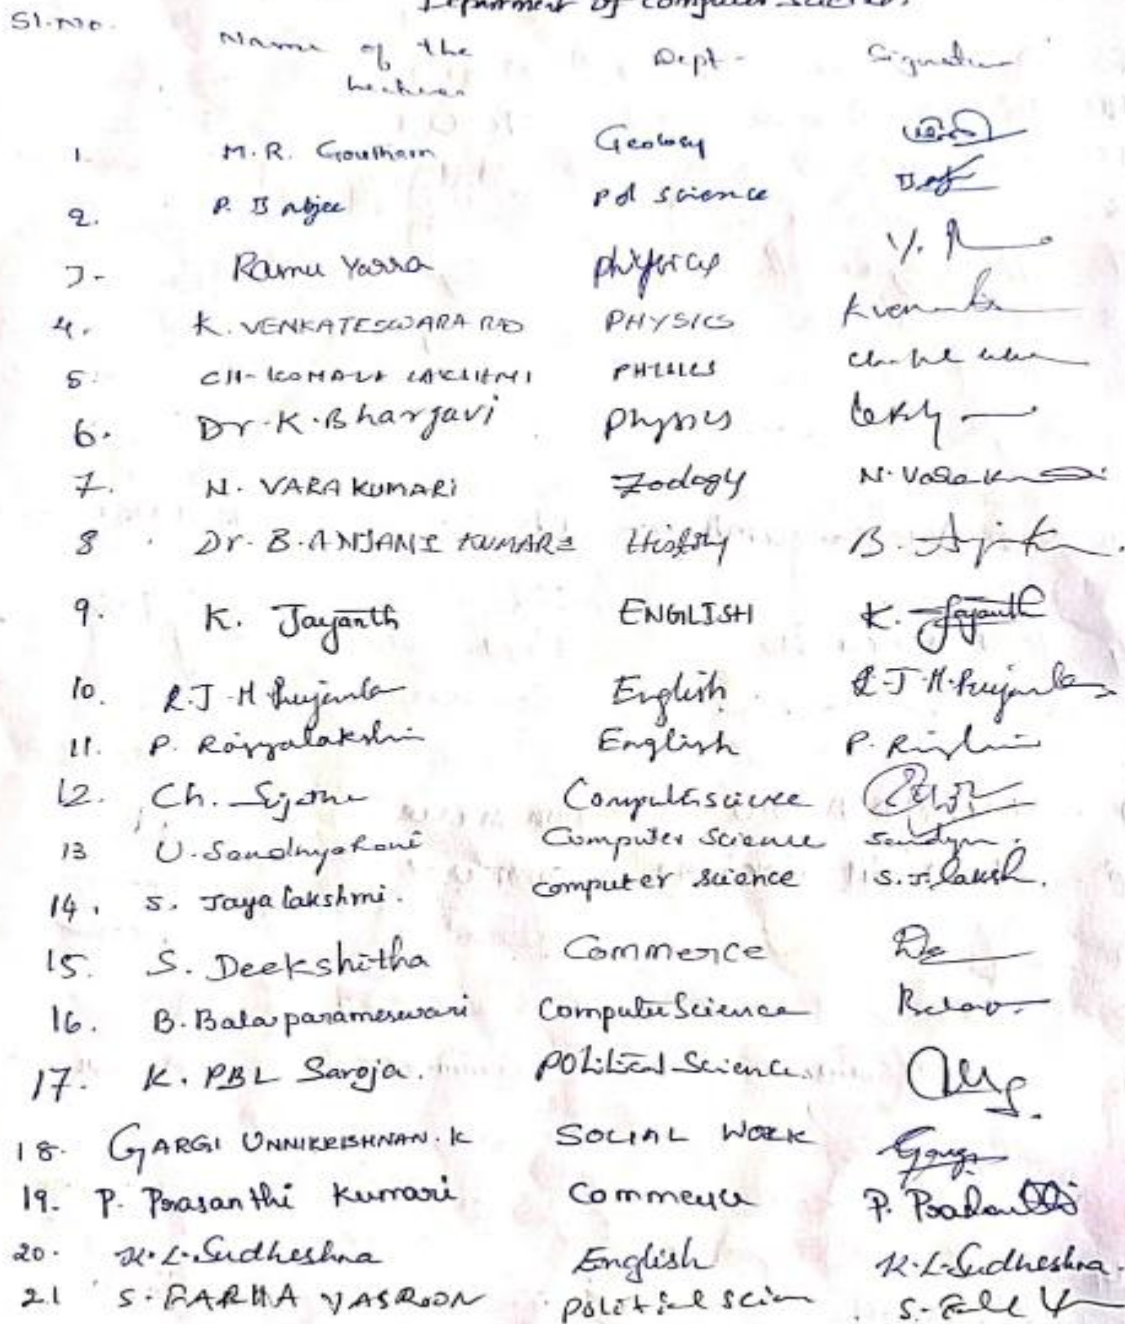 Department of Computer Science.
Sl.No. Name of the Dept- Signature
Lecturer
1. M.R. Goutham Geology
2. P. Babjee Pol Science
3- Ramu Yarra physics Y. R
4. K. VENKATESWARA RAO PHYSICS
5. CH- KOMALA LAKSHMI PHYSICS
6. Dr. K. Bhargavi Physics
7. N. VARA KUMARI Zoology N. Vara
8 Dr. B. ANJANI KUMARI History B.
9. K. Jayanth ENGLISH K. Jayanth
10. R.J.H English R.J.H.
11. P. Rajyalakshmi English P.
12. Ch. Computer science
13 U. Sandhya Rani Computer Science Sandya.
14. S. Jaya lakshmi. computer science S.J.laksh.
15. S. Deekshitha Commerce De
16. B. Balaparameswari Computer Science
17. K. PBL Saroja. Political Science
18. GARGI UNNIKRISHNAN. K SOCIAL WORK Gargi
19. P. Prasanthi Kumari Commerce P. Prasanthi
20. K. L. Sudheshna English K. L. Sudheshna.
21 S. FARHA Political Scien S.